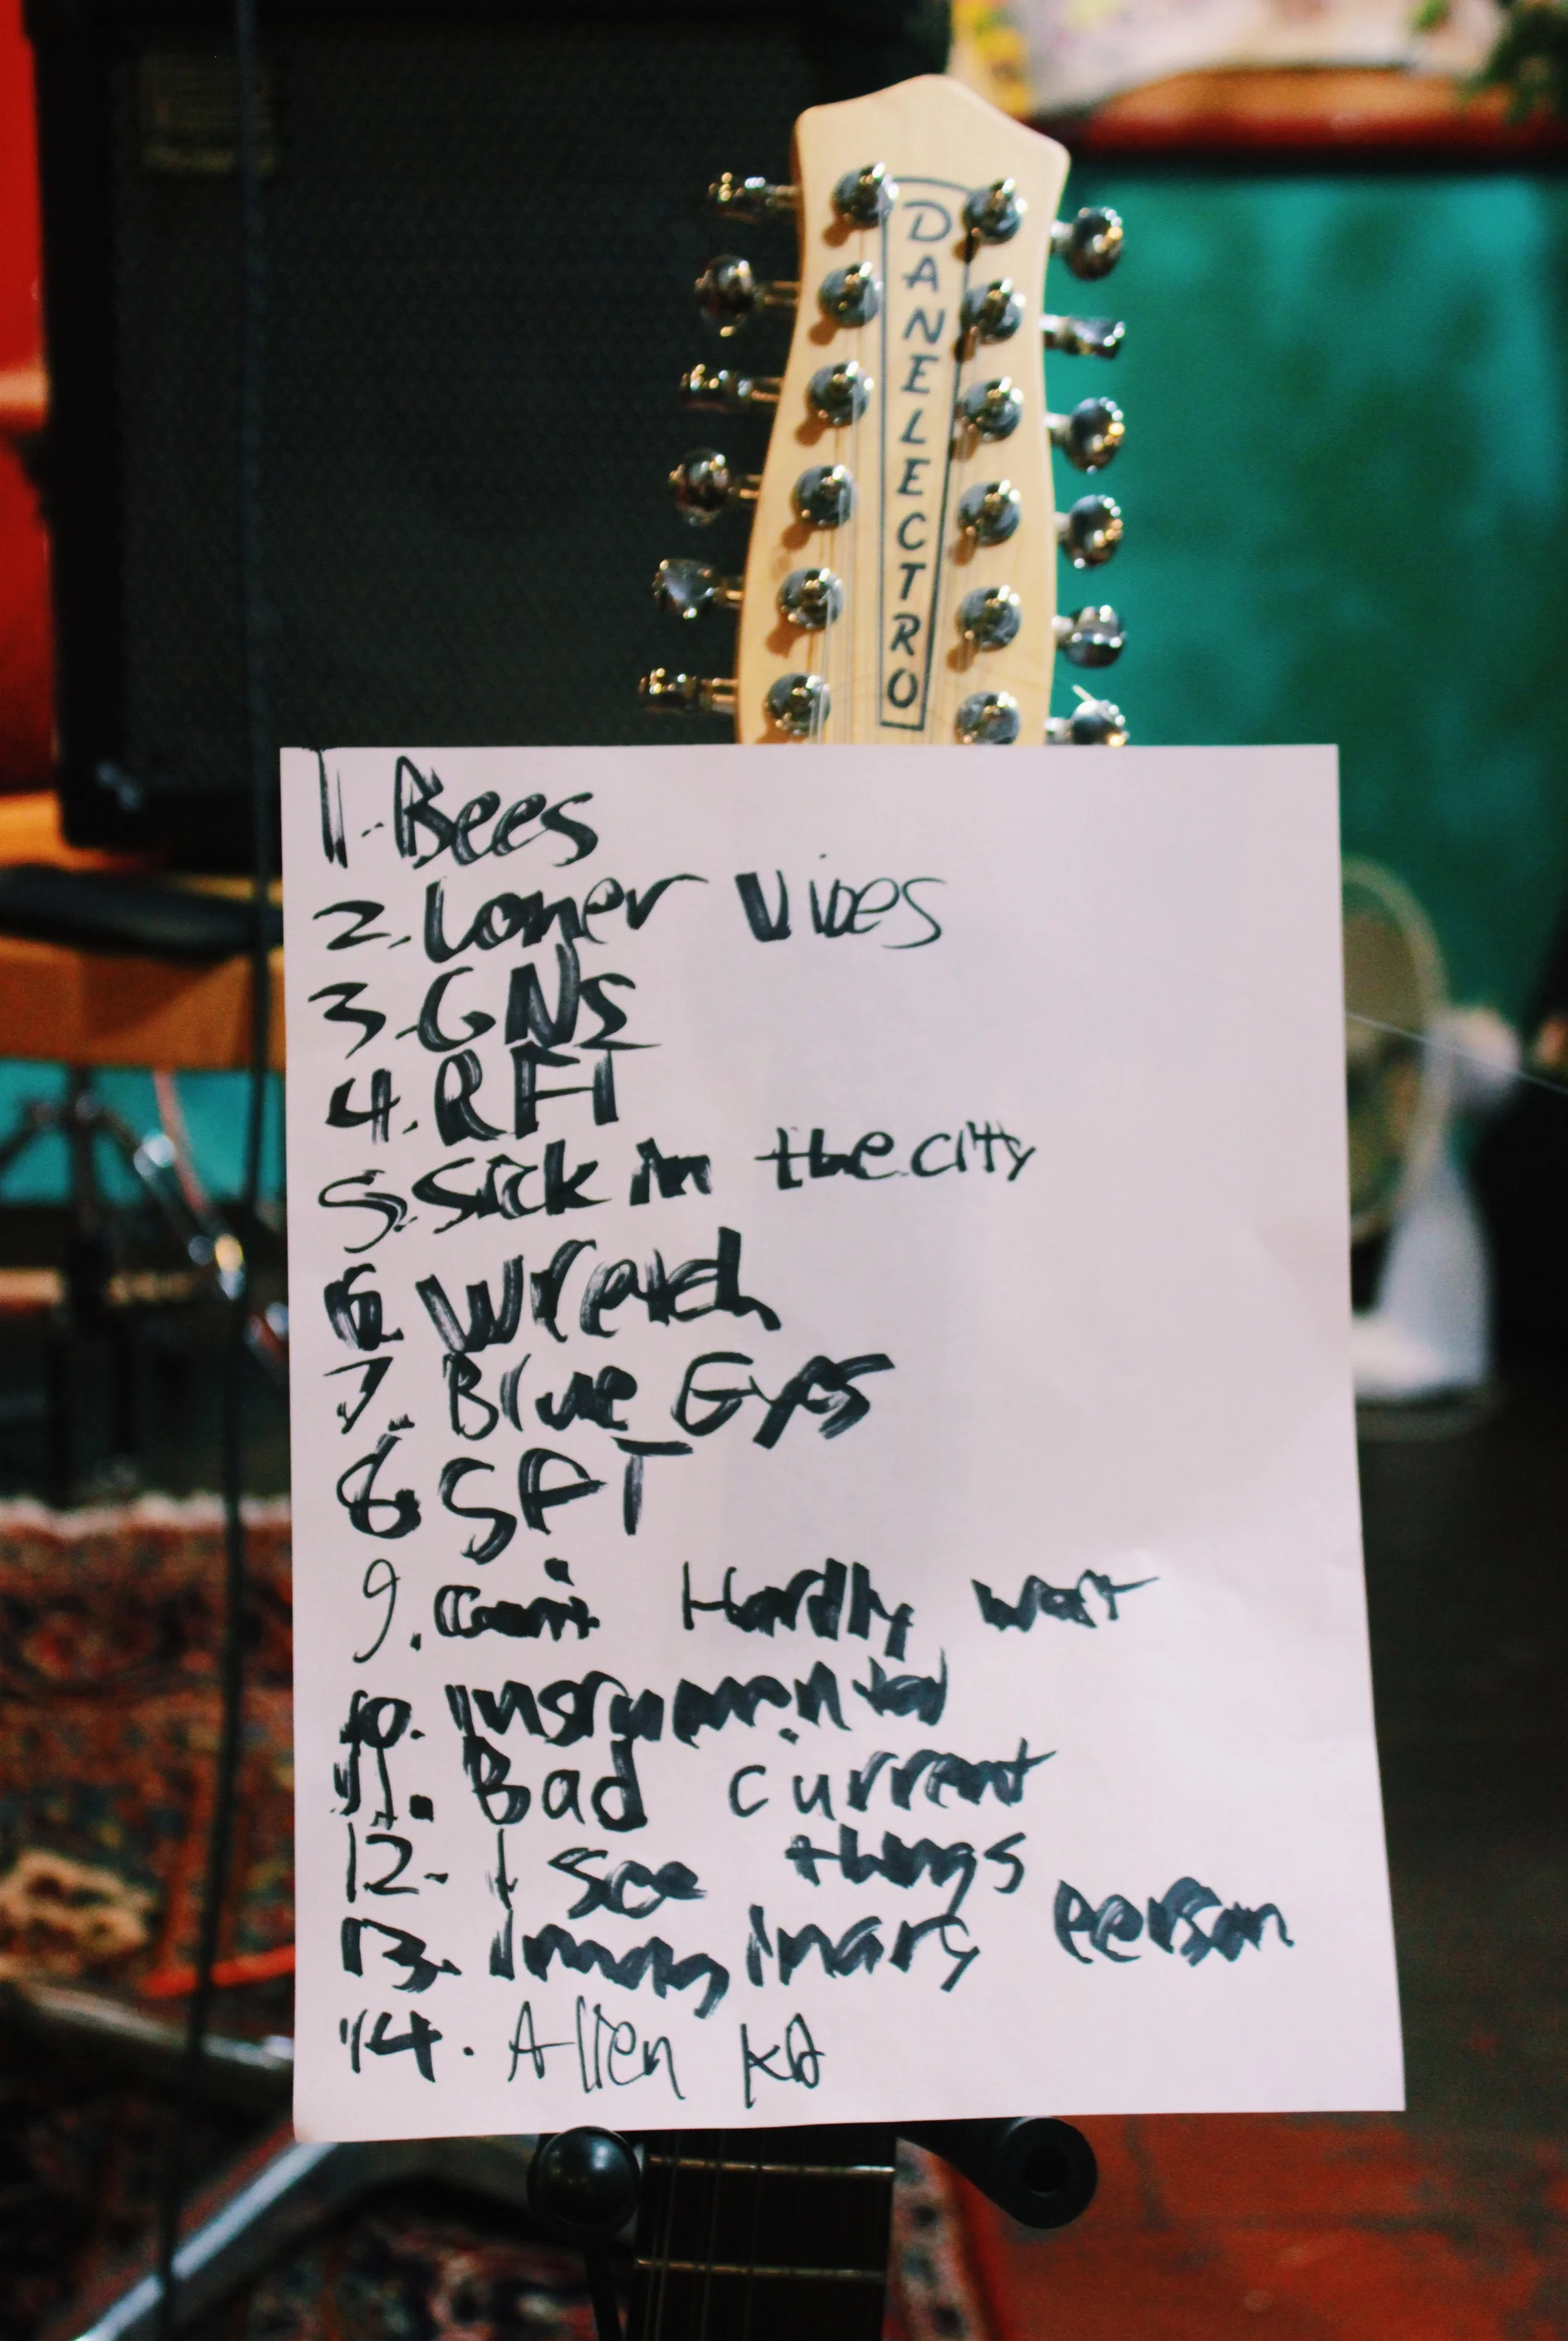 DANELECTRO
1. Bees
2. Loner Vibes
3. GNS
4. RFI
5. Sick in the city
6. Wretch
7. Blue Eyes
8. SFT
9. Can't Hardly wait
10. Instrumental
11. Bad current
12. I see things
13. Imaginary Person
14. Alien